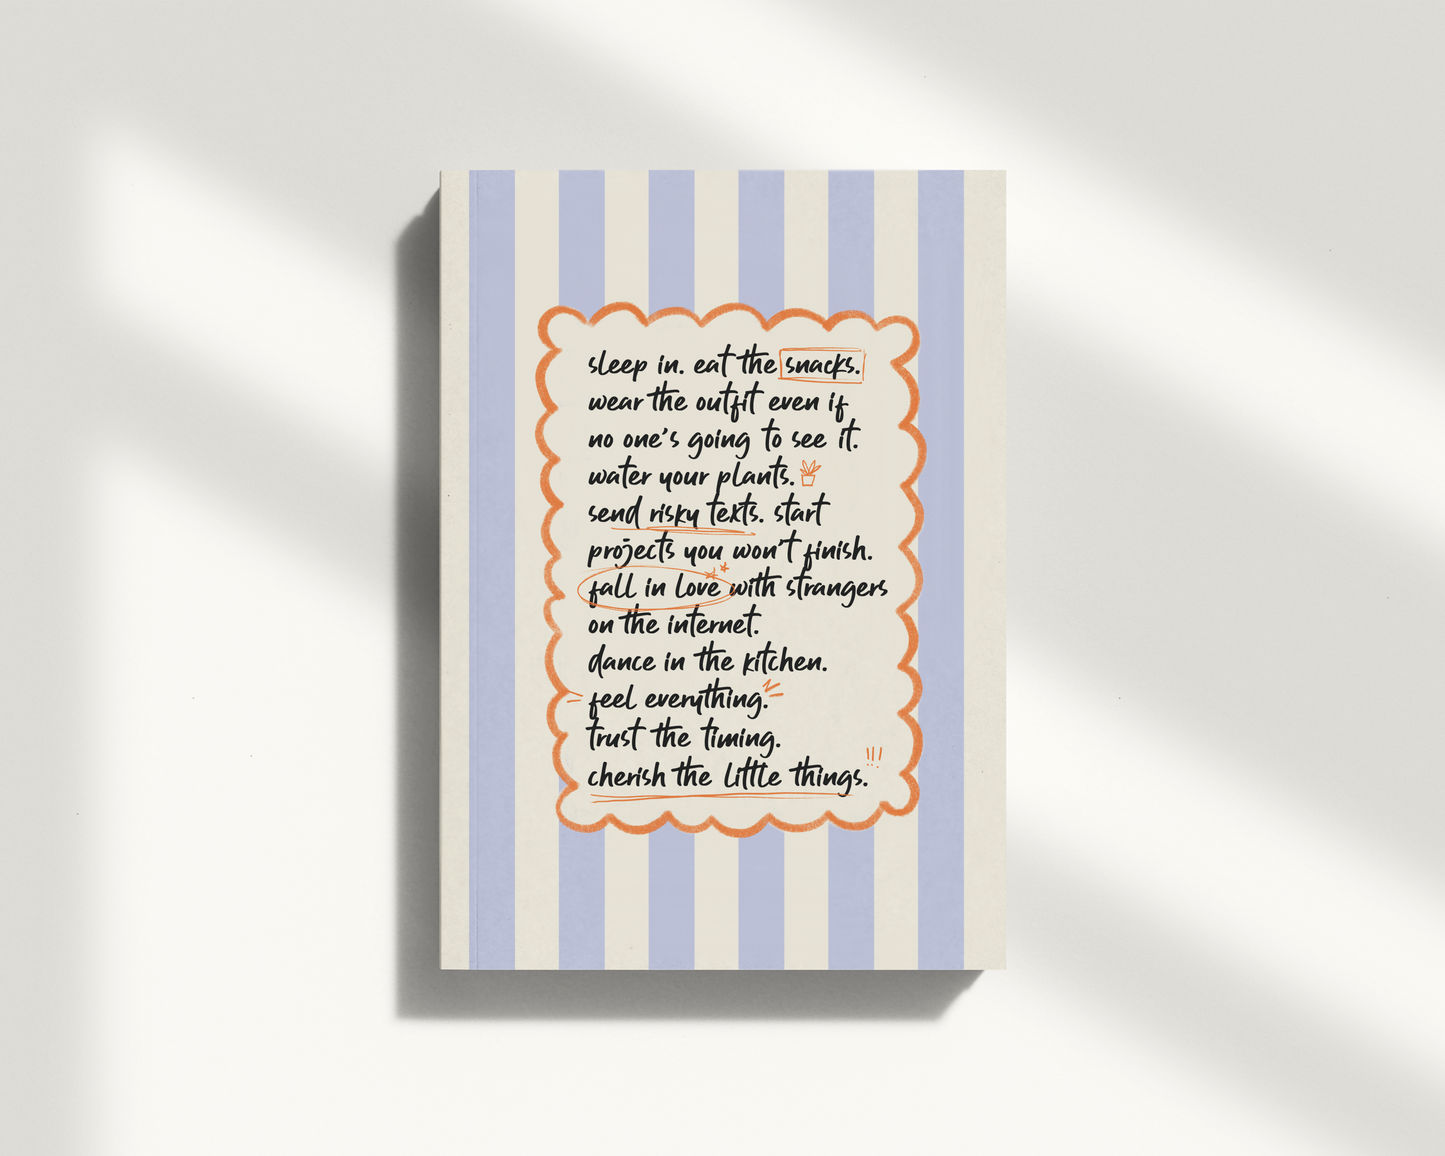 sleep in. eat the snacks.
wear the outfit even if
no one's going to see it.
water your plants.
send risky texts. start
projects you won't finish.
fall in love with strangers
on the internet.
dance in the kitchen.
feel everything.
trust the timing.
cherish the little things.
!!!